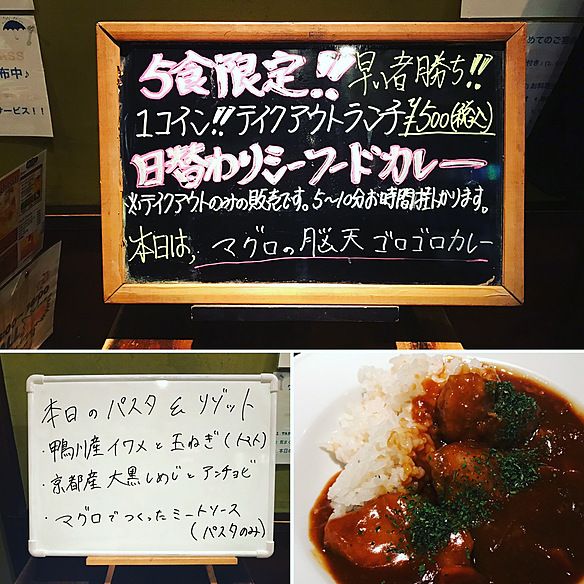 5食限定!! 早い者勝ち!!
1コイン!!テイクアウトランチ ¥500(税込)
日替わりシーフードカレー
※テイクアウトのみの販売です。5〜10分お時間掛かります。
本日は、マグロの脳天ゴロゴロカレー
本日のパスタ & リゾット
・鴨川産イワメと玉ねぎ(トマト)
・京都産大黒しめじとアンチョビ
・マグロでつくったミートソース
(パスタのみ)
布中♪
サービス!!